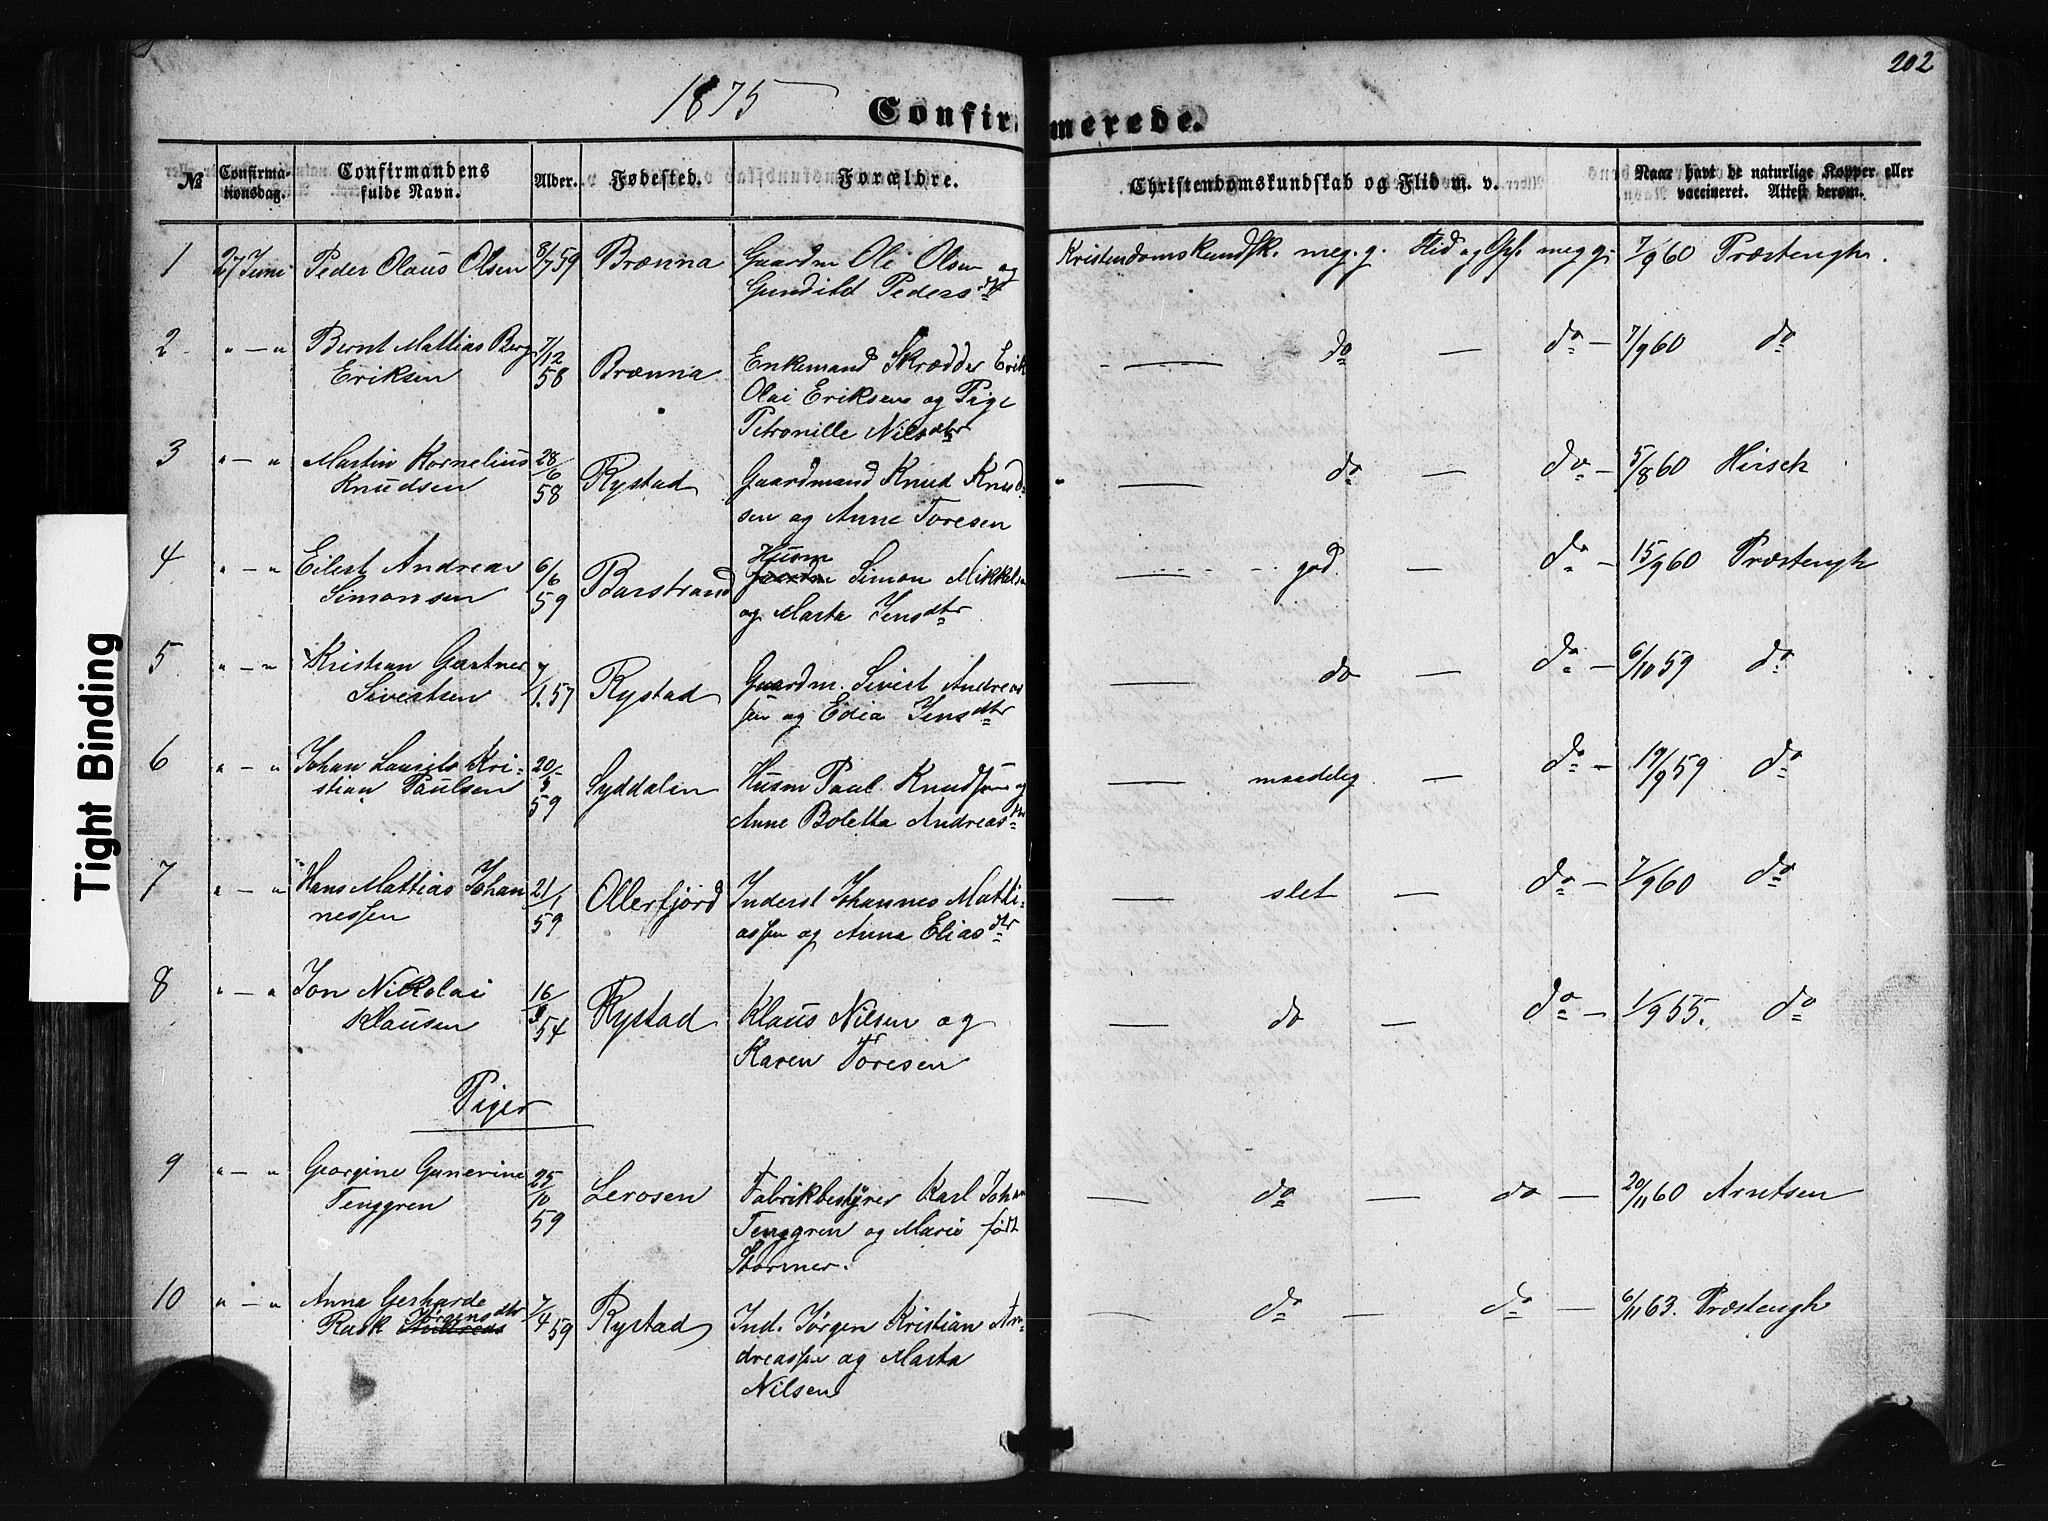 202
1875
Confirmerede.
No Confirmationsdag. Confirmandens fulde Navn. Alder. Fødested. Forældre. Christendomskundskab og Flid m. v. Naar havt de naturlige Kopper eller vaccineret. Attest derom.
1 27 Juni Peder Olaus Olsen 8/7 59 Brænna Gaardm Ole Olsen og Kristendomskundsk. meg. g. Flid og Opf. meg g. 7/9 60 Præstengh.
Gunild Pedersdt
2 " — " Bernt Mattias Berg 7/12 58 Brænna Enkemand Skrædder Erik — do — do — 7/9 60 do
Eriksen Olai Eriksen og Pige
Petronille Nilsdtr
3 " — " Martin Kornelius 28/6 58 Rystad Gaardmand Knud Knud- — do — do — 5/8 60 Hirsch
Knudsen sen og Anne Toresen
4 " — " Eilert Andreas 6/6 59 Barstrand Husm Simon Mikkelsen — god. — do — 15/9 60 Præstengh
Simonsen og Marta Jensdtr
5 " — " Kristian Gartner 7/1. 57 Rystad Gaardm. Sivert Andreas — do — do — 6/10 59 do
Sivertsen sen og Edia Jensdtr
6 " — " Johan Laurits Kri- 20/3 59 Syddalen Husm Paul Knudsen og — maadelig — do — 19/9 59 do
stian Paulsen Anne Boletta Andreasdtr
7 " — " Hans Mattias Johan 21/1 59 Ollerfjord Inderst Johannes Matti- — slet — do — 7/9 60 do
nessen assen og Anna Eliasdtr
8 " — " Jon Nikolai 16/3 54 Rystad Klaus Nilsen og — do — do — 1/9 55. do
Klausen Karen Toresen
Piger
9 " — " Georgine Gunerine 25/10 59 Lerosen Fabrikbestyrer Karl Johan — do — do — 20/11 60 Arntsen
Tenggren Tenggren og Marie født
Størmer.
10 " — " Anna Gerharde 7/4 59 Rystad Ind. Jørgen Kristian An- — do — do — 6/11 63. Præstengh
Rask Jørgensdtr dreassen og Marta
Nilsen
Tight Binding